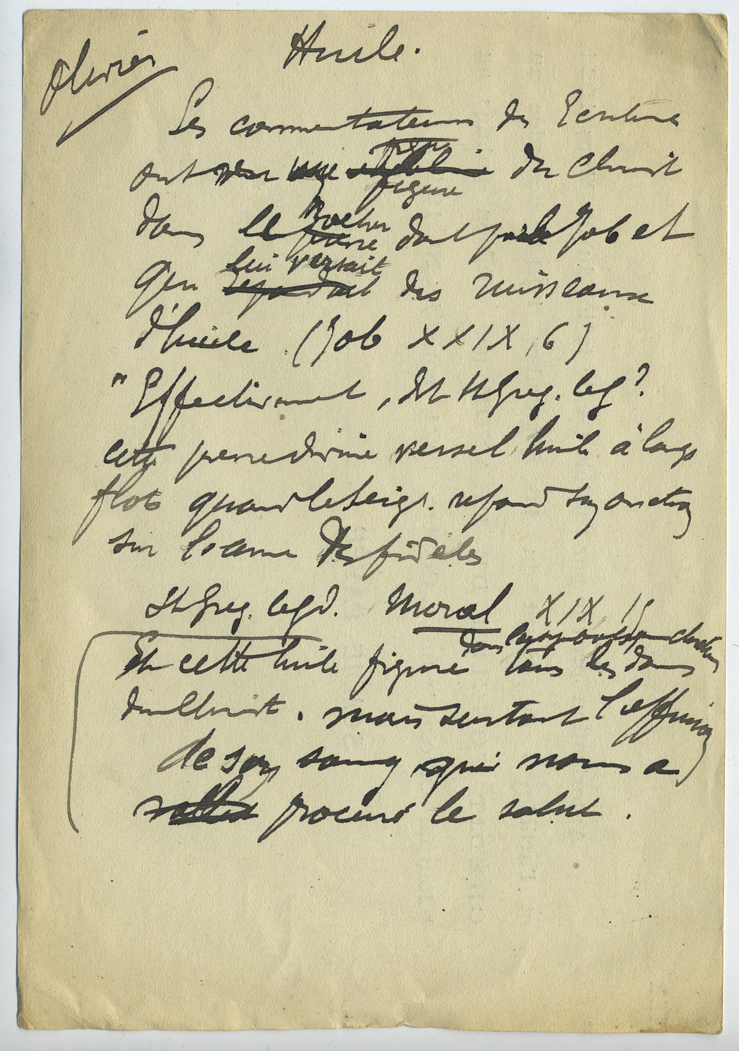 Olivier
Huile.
Les commentateurs des Ecritures
ont vu une figure du Christ
dans le rocher dont parle Job et
qui lui versait des ruisseaux
d'huile (Job XXIX, 6)
"Effectivement, dit St Greg. leg?
cette pierre divine verse l'huile à longs
flots quand le Seigr. répand son onction
sur l'âme des fidèles
St Greg. leg d. Moral XIX, 15
Et cette huile figure tous les dons
dans
du Christ. mais surtout l'effusion
de son sang qui nous a
procuré le salut.